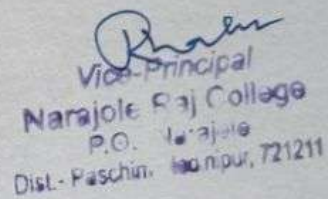 Vice-Principal
Narajole Raj College
P.O. Narajole
Dist.- Paschim. 721211